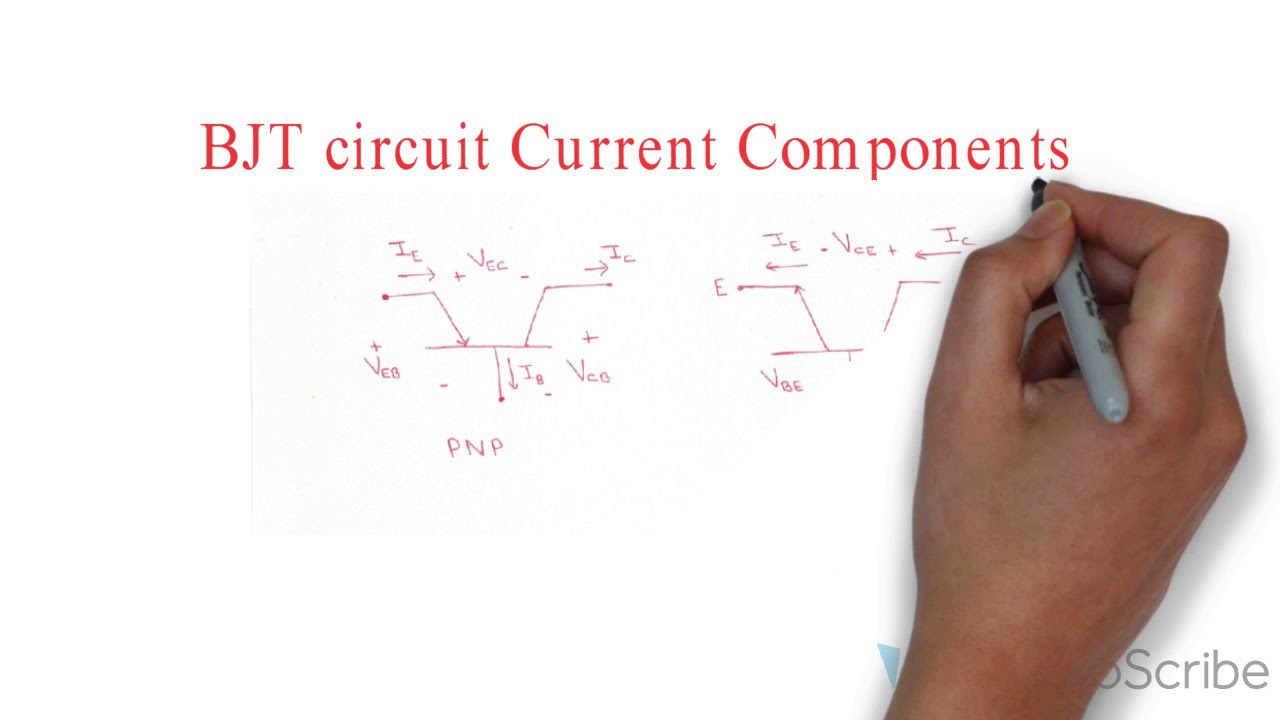 BJT circuit Current Components
I_E
+ V_EC -
I_C
+
V_EB
-
I_B
+
V_CB
-
PNP
I_E
- V_CE +
I_C
E
V_BE
Scribe